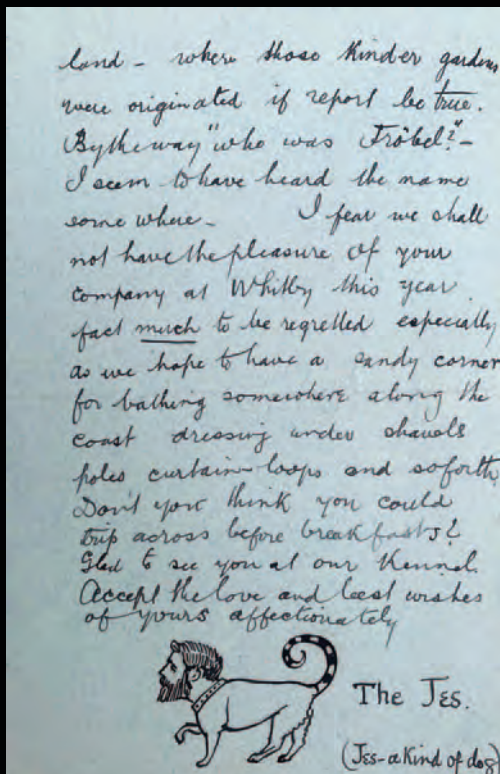 land - where those Kinder gardens
were originated if report be true.
By the way "who was Fröbel?" -
I seem to have heard the name
some where - I fear we shall
not have the pleasure of your
company at Whitby this year
fact much to be regretted especially
as we hope to have a sandy corner
for bathing somewhere along the
coast dressing under shawls
poles curtain-loops and soforth,
Don't you think you could
trip across before breakfasts?
Glad to see you at our Kennel.
Accept the love and best wishes
of yours affectionately
The Jes.
(Jes-a Kind of dog)